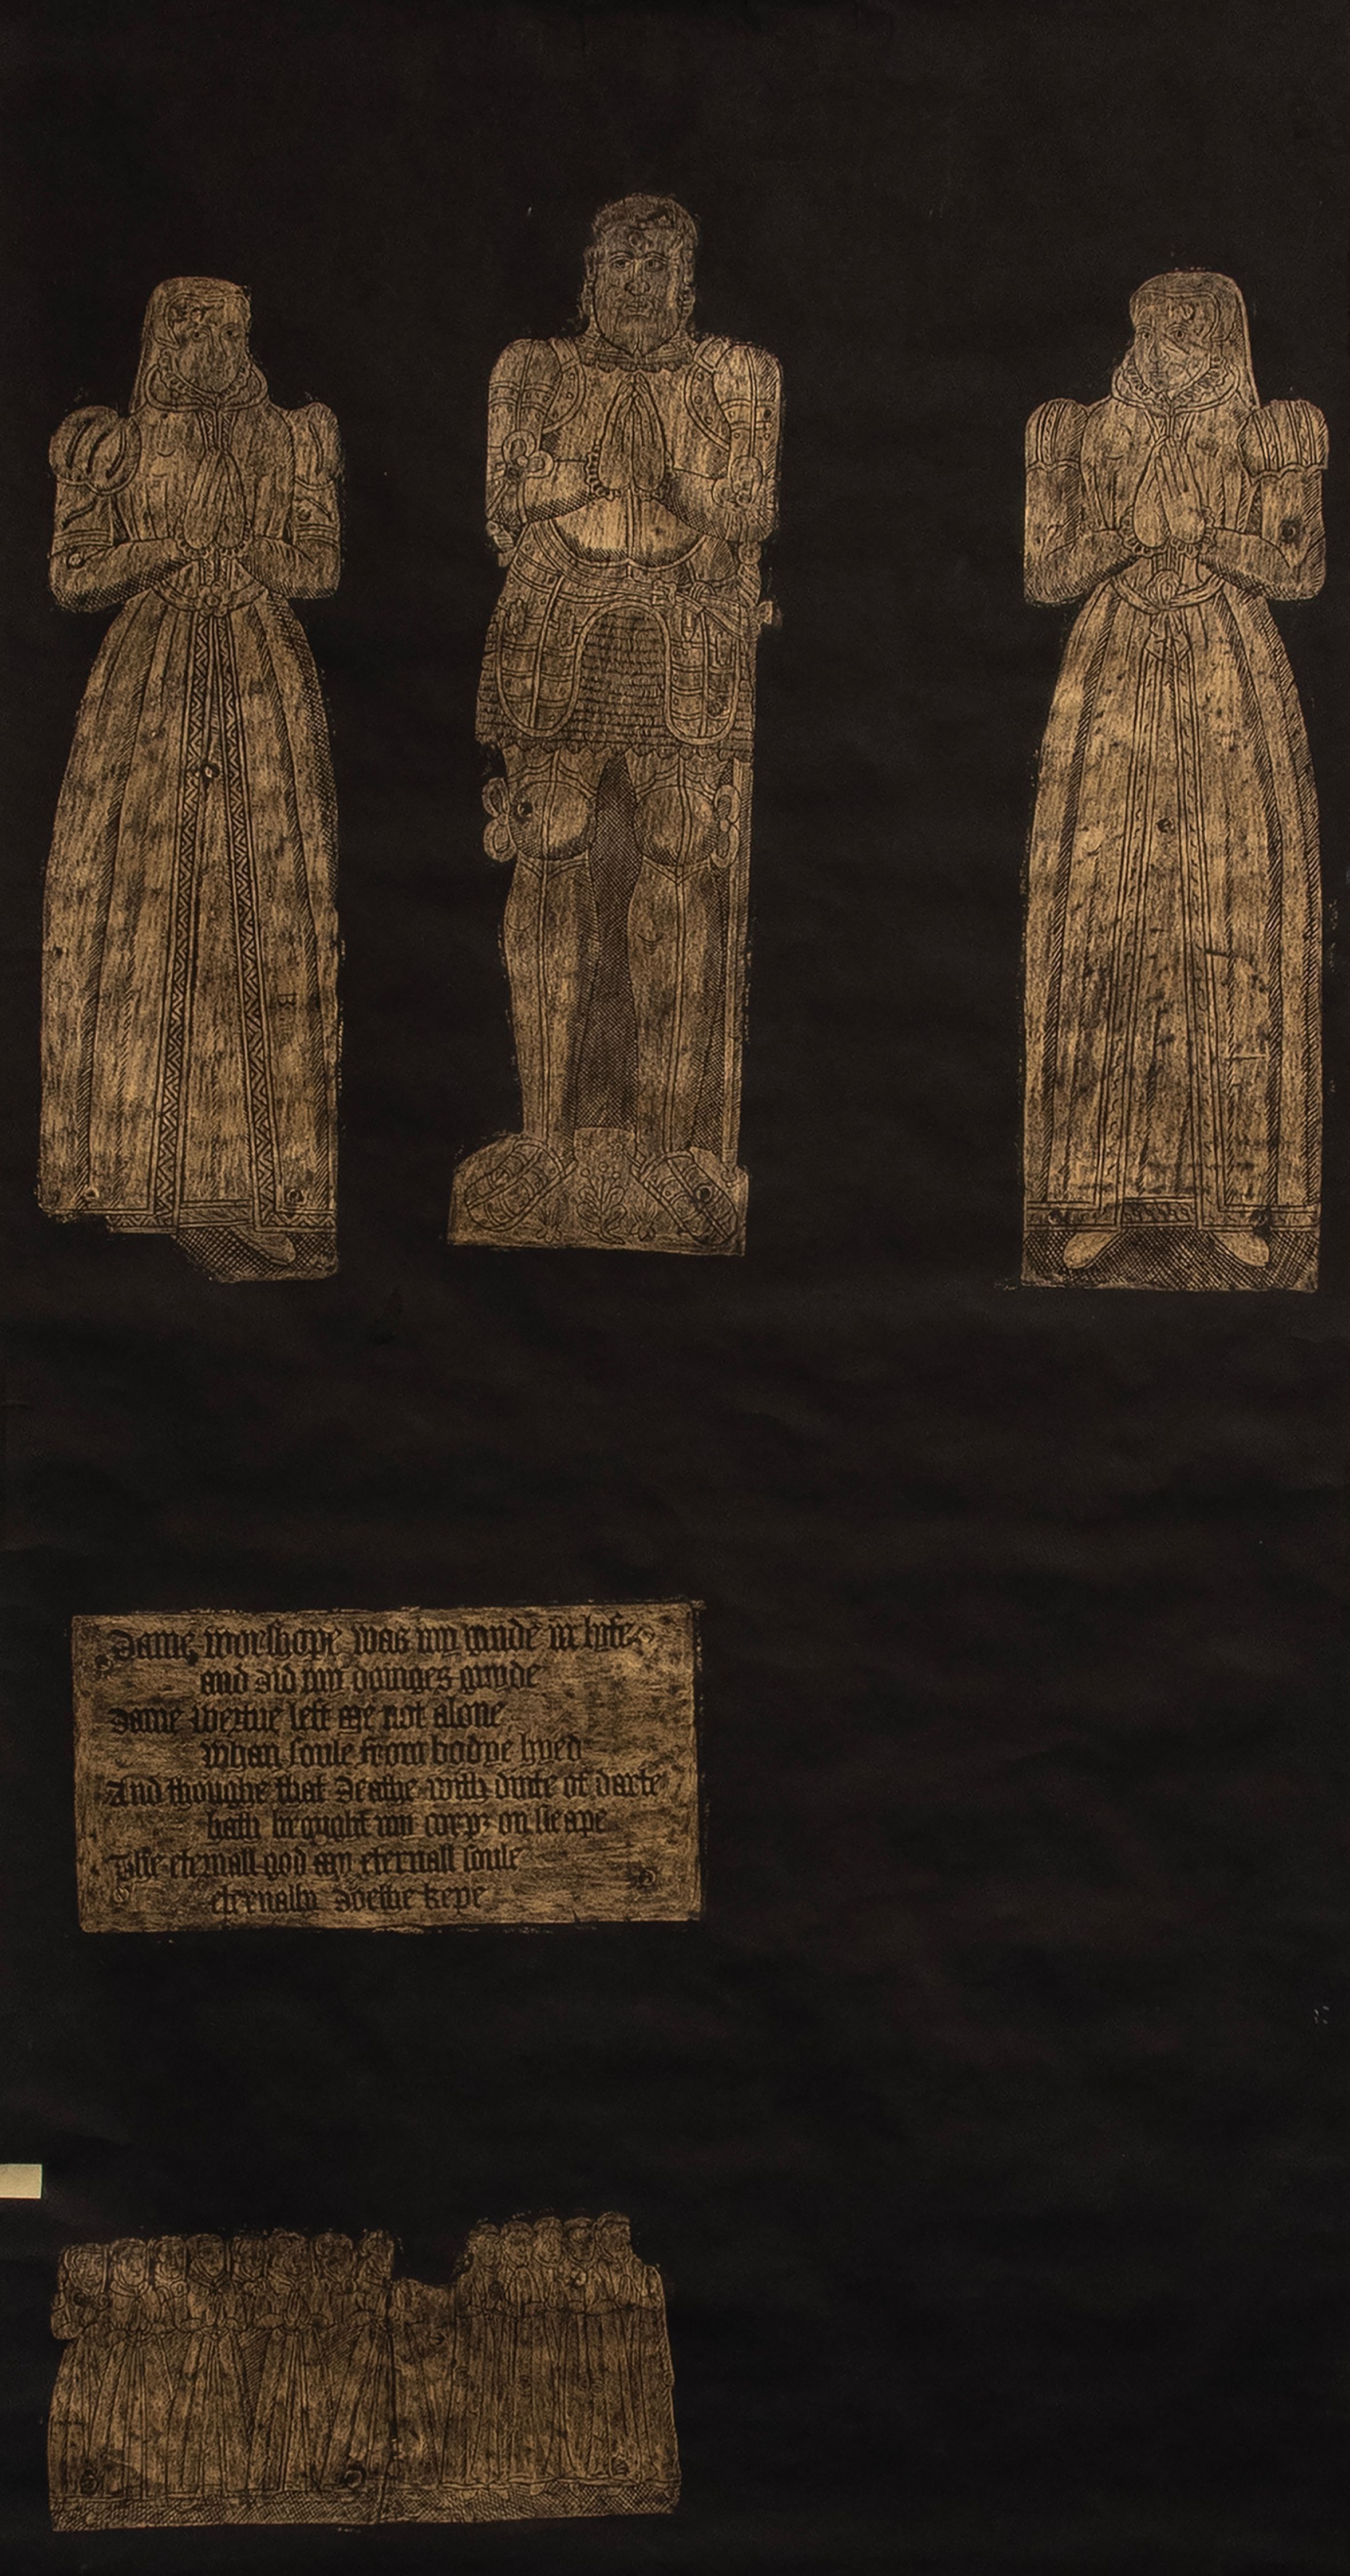 Dame worshope was my minde in lyfe
and did my doinges guyde
Dame vertue left me not alone
whan soule from bodye hyed
And thoughe that Deathe with dinte of darte
hath brought my corps on sleape
The eternall god my eternall soule
eternally doethe kepe